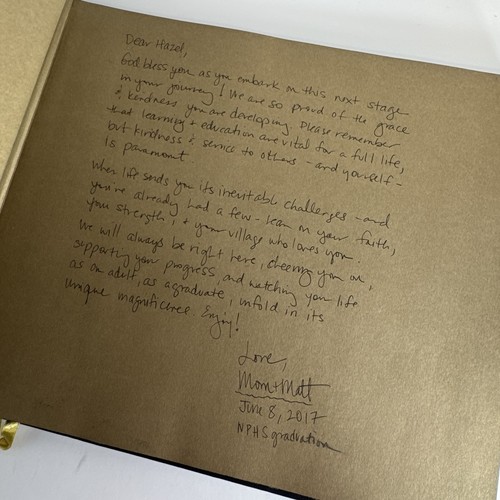 Dear Hazel,
God bless you as you embark on this next stage
in your journey! We are so proud of the grace
& kindness you are developing. Please remember
that learning + education are vital for a full life,
but kindness & service to others - and yourself -
is paramount.
When life sends you its inevitable challenges - and
you've already had a few - lean on your faith,
your strength, + your village who loves you.
We will always be right here, cheering you on,
supporting your progress, and watching your life
as an adult, as a graduate, unfold in its
unique magnificence. Enjoy!
Love,
Mom + Matt
June 8, 2017
NPHS graduation